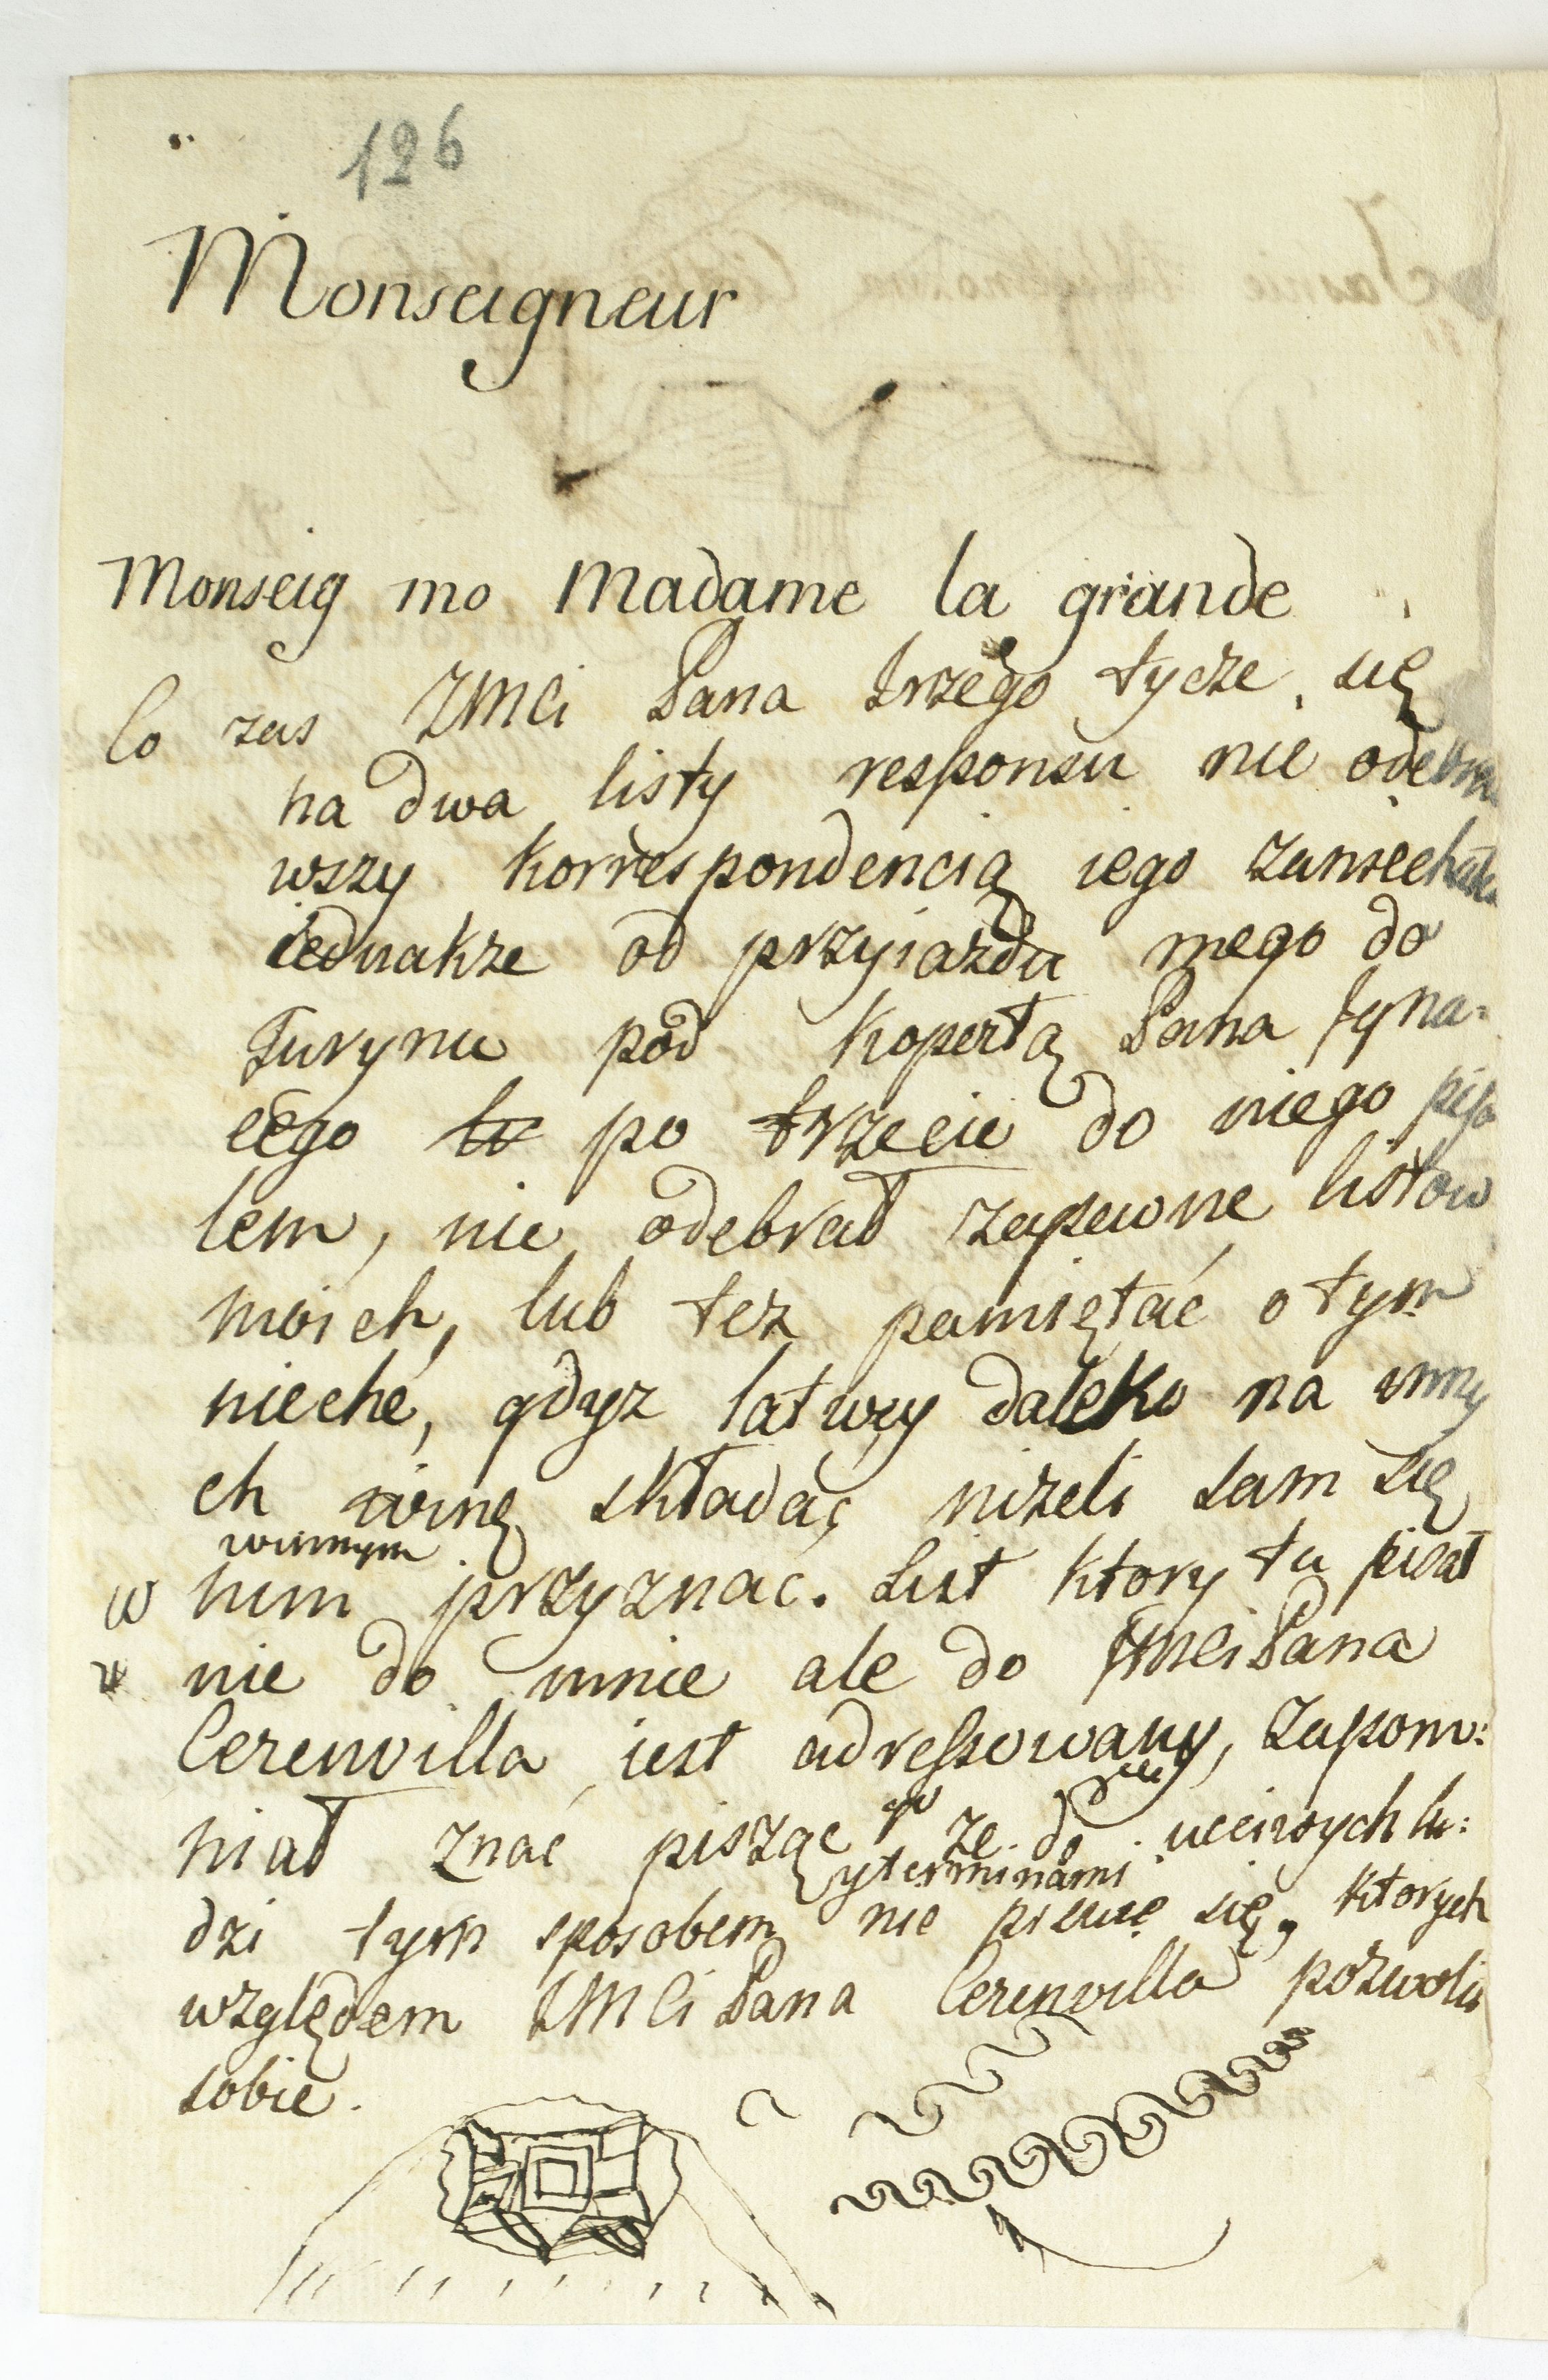 126
Monseigneur
Monseig mo Madame la grande
Co zas JMCi Pana tycze się
na dwa listy responsu nie odebra
wszy korrespondencią iego
iednakze od przyiazdu mego do
Turynu pod kopertą Pana Jgna:
cego po trzecie do niego pisa
lem, nie odebrał zapewne listow
moich, lub tez pamiętać o tym
niechć, gdyz latwey daleko na inny
ch winę składać nizeli sam się
winnym
w nim przyznać. List ktory tu pisał
nie do mnie ale do JMCi Pana
Cerenvilla iest adressowany, zapom:
niał znać pisząc go ze do uczciwych lu:
yterminami
dzi tym sposobem nie pisuie się, ktorych
względem JMCi Pana Cerenvilla pozwolił
sobie.